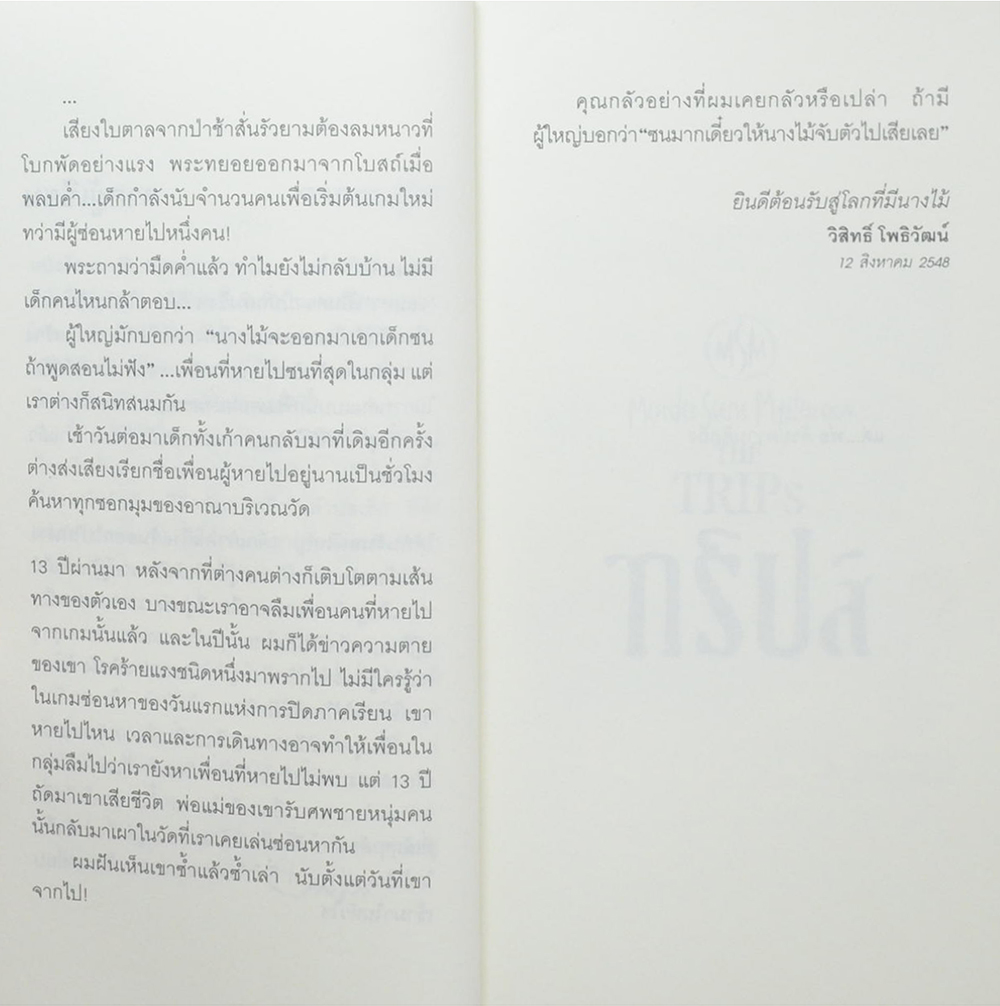 ...
เสียงใบตาลจากป่าช้าสั่นรัวยามต้องลมหนาวที่
โบกพัดอย่างแรง พระทยอยออกมาจากโบสถ์เมื่อ
พลบค่ำ...เด็กกำลังนับจำนวนคนเพื่อเริ่มต้นเกมใหม่
ทว่ามีผู้ซ่อนหายไปหนึ่งคน!
พระถามว่ามืดค่ำแล้ว ทำไมยังไม่กลับบ้าน ไม่มี
เด็กคนไหนกล้าตอบ...
ผู้ใหญ่มักบอกว่า “นางไม้จะออกมาเอาเด็กซน
ถ้าพูดสอนไม่ฟัง” ...เพื่อนที่หายไปซนที่สุดในกลุ่ม แต่
เราต่างก็สนิทสนมกัน
เช้าวันต่อมาเด็กทั้งเก้าคนกลับมาที่เดิมอีกครั้ง
ต่างส่งเสียงเรียกชื่อเพื่อนผู้หายไปอยู่นานเป็นชั่วโมง
ค้นหาทุกซอกมุมของอาณาบริเวณวัด
13 ปีผ่านมา หลังจากที่ต่างคนต่างก็เติบโตตามเส้น
ทางของตัวเอง บางขณะเราอาจลืมเพื่อนคนที่หายไป
จากเกมนั้นแล้ว และในปีนั้น ผมก็ได้ข่าวความตาย
ของเขา โรคร้ายแรงชนิดหนึ่งมาพรากไป ไม่มีใครรู้ว่า
ในเกมซ่อนหาของวันแรกแห่งการปิดภาคเรียน เขา
หายไปไหน เวลาและการเดินทางอาจทำให้เพื่อนใน
กลุ่มลืมไปว่าเรายังหาเพื่อนที่หายไปไม่พบ แต่ 13 ปี
ถัดมาเขาเสียชีวิต พ่อแม่ของเขารับศพชายหนุ่มคน
นั้นกลับมาเผาในวัดที่เราเคยเล่นซ่อนหากัน
ผมฝันเห็นเขาซ้ำแล้วซ้ำเล่า นับตั้งแต่วันที่เขา
จากไป!
คุณกลัวอย่างที่ผมเคยกลัวหรือเปล่า ถ้ามี
ผู้ใหญ่บอกว่า“ซนมากเดี๋ยวให้นางไม้จับตัวไปเสียเลย”
ยินดีต้อนรับสู่โลกที่มีนางไม้
วิสิทธิ์ โพธิวัฒน์
12 สิงหาคม 2548
TRIPs
ทริปส์